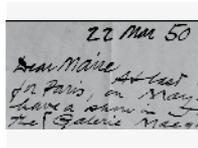 22 Mar 50
Dear Marie
At last
for Paris, on May
have a show in
the Galerie Maeg